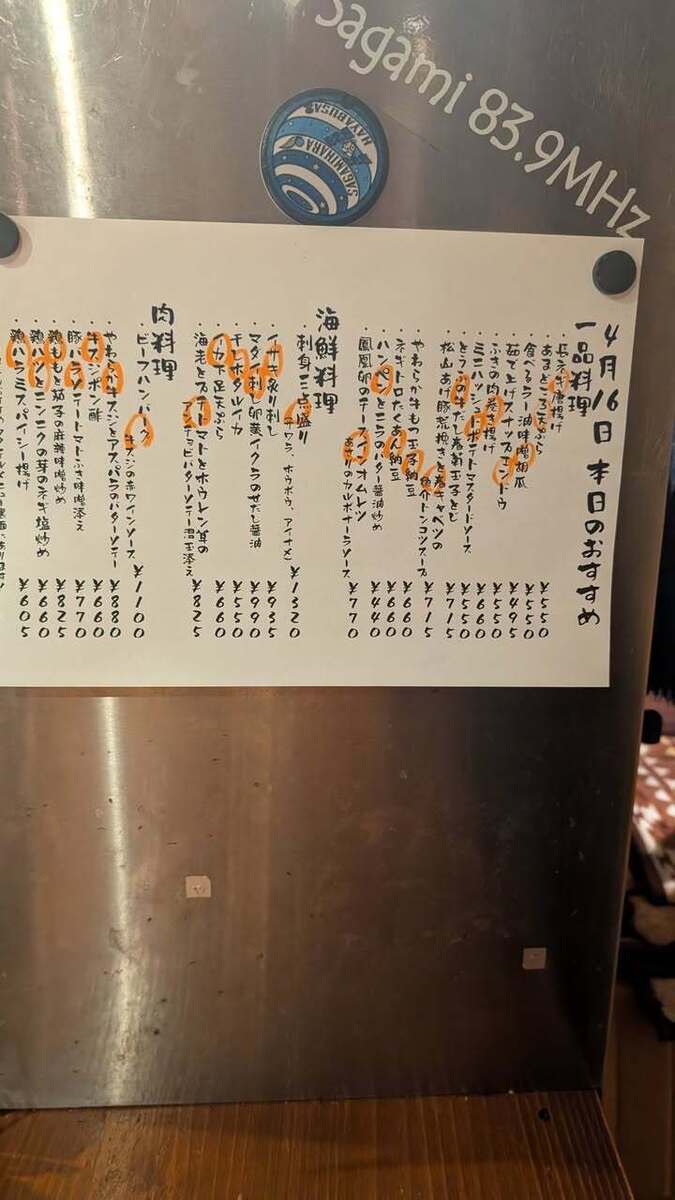 Sagami 83.9MHz
SAGAMIHARA
HAYABUSA
4月16日 本日のおすすめ
一品料理
・長ネギ唐揚げ ¥550
・あまどころ天ぷら ¥550
・食べるラー油味噌胡瓜 ¥495
・茹で上げスナップエンドウ ¥550
・ふきの肉巻き揚げ ¥660
・ミニハッシュドポテトマスタードソース ¥550
・とうふの牛だし春菊玉子とじ ¥715
・松山あげ豚荒挽きと春キャベツの
魚介トンコツスープ ¥715
・やわらか牛もつ玉子納豆 ¥660
・ネギトロたくあん納豆 ¥660
・ハンペンとニラのバター醤油炒め ¥440
・鳳凰卵のチーズインオムレツ
あさりのカルボナーラソース ¥770
海鮮料理
・刺身三点盛り
(サワラ、ホウボウ、アイナメ) ¥1320
・イサキ炙り刺し ¥935
・マダイ刺 卵黄イクラのせだし醤油 ¥990
・生ホタルイカ ¥550
・イカ下足天ぷら ¥660
・海老とステトマトとホウレン草の
アンチョビバターソテー温玉添え ¥825
肉料理
・ビーフハンバーグ
牛スジの赤ワインソース ¥1100
・やわらか牛スジとアスパラのバターソテー ¥880
・牛スジポン酢 ¥660
・豚バラソテートマトふき味噌添え ¥770
・鶏ももと茄子の麻辣味噌炒め ¥825
・鶏ハツとニンニクの芽のネギ塩炒め ¥660
・鶏ハラミスパイシー揚げ ¥605